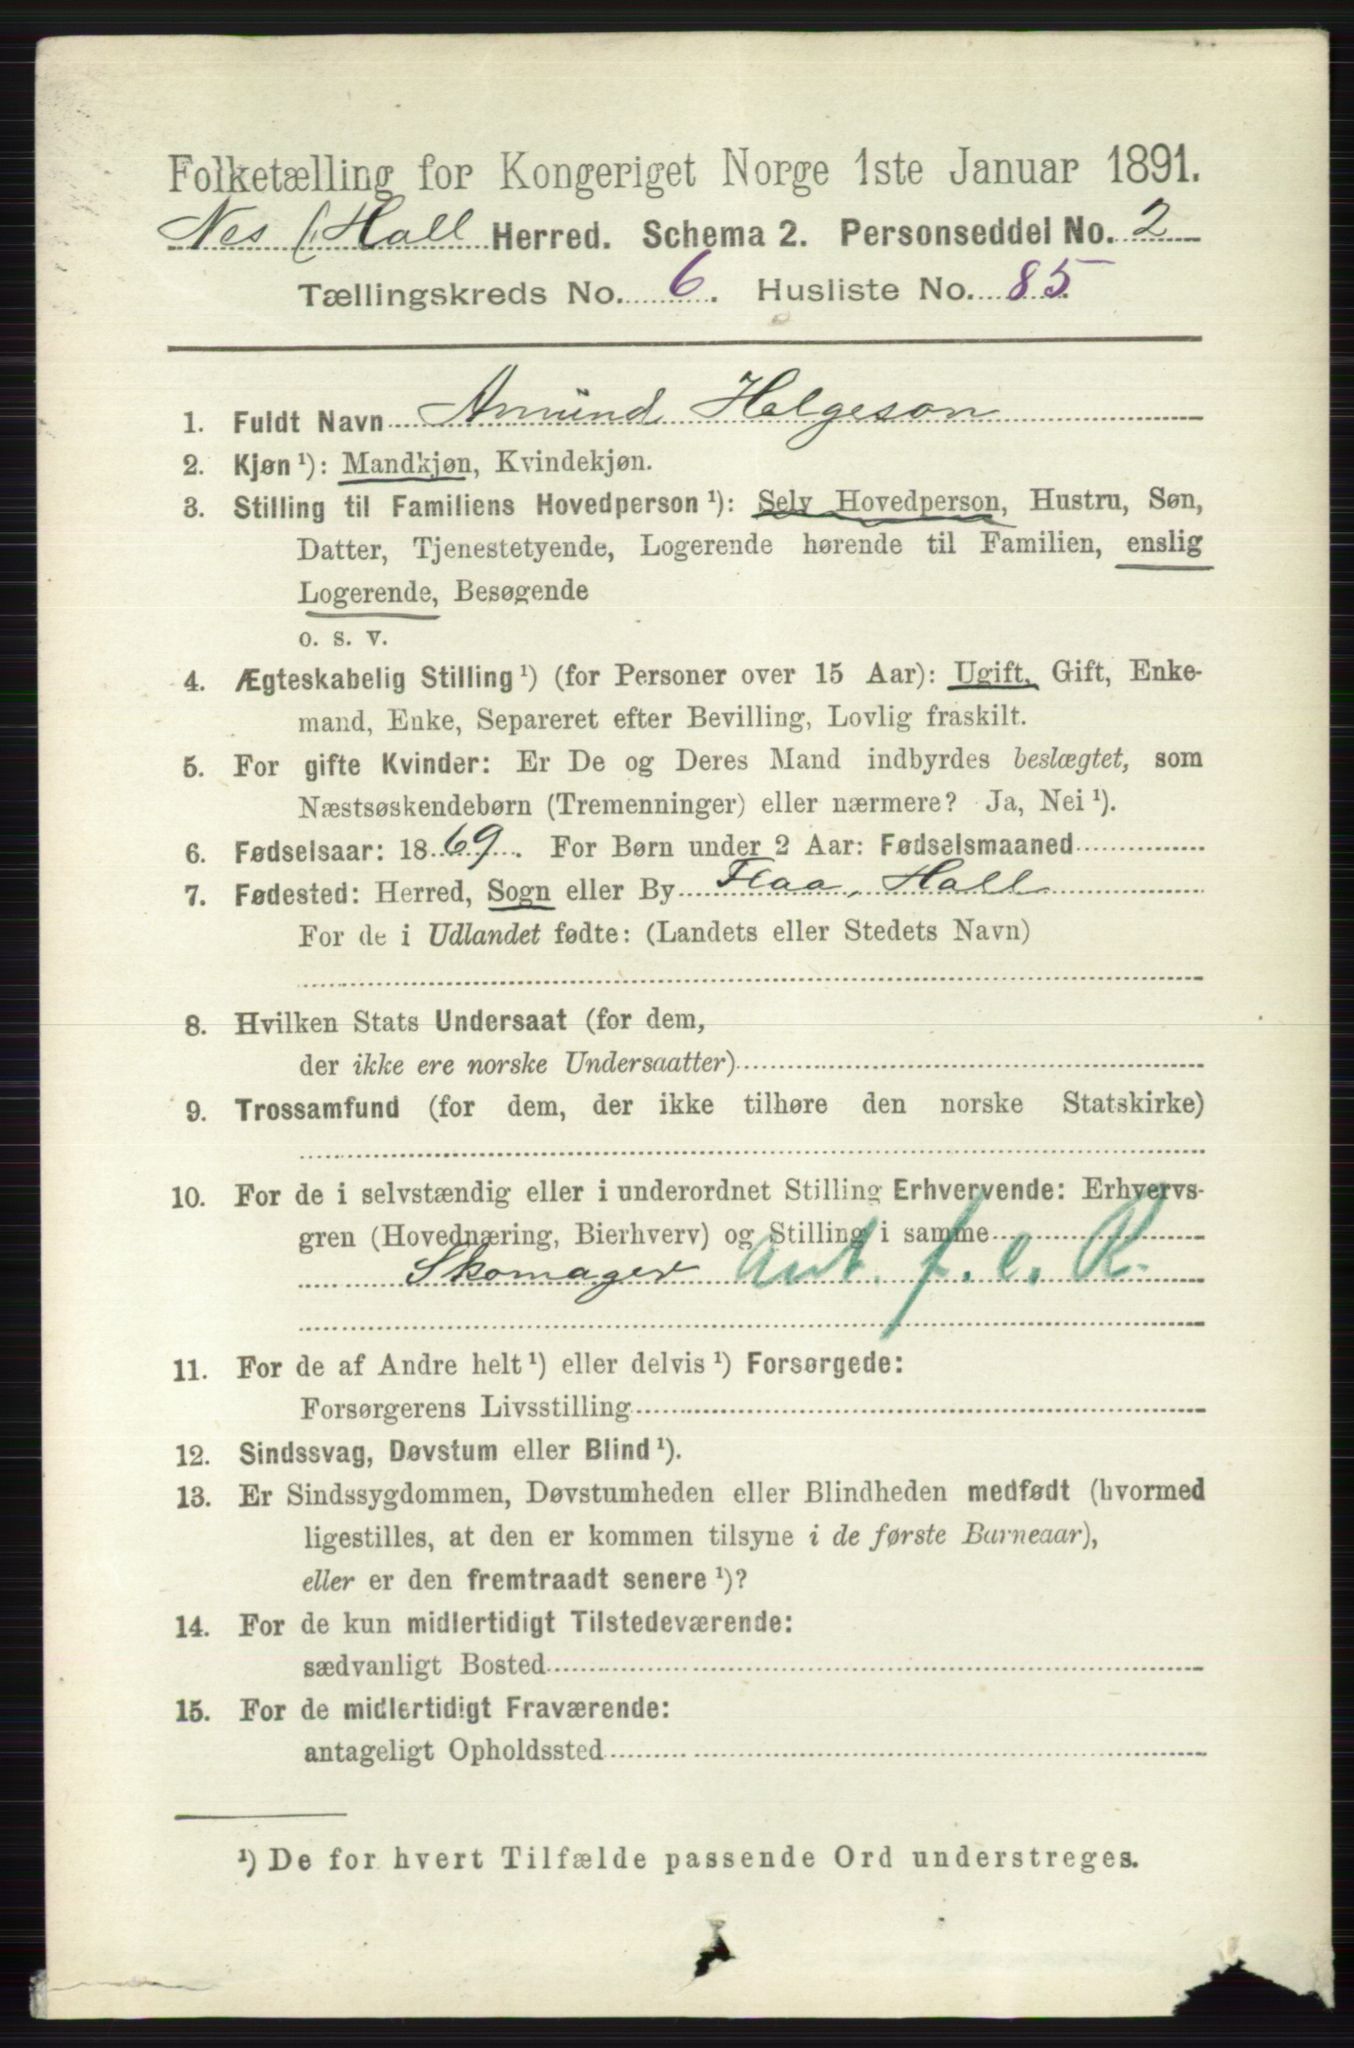 Folketælling for Kongeriget Norge 1ste Januar 1891.
Nes (Hall Herred. Schema 2. Personseddel No. 2
Tællingskreds No. 6. Husliste No. 85.
1. Fuldt Navn Amund Helgeson
2. Kjøn ¹): Mandkjøn, Kvindekjøn.
3. Stilling til Familiens Hovedperson ¹): Selv Hovedperson, Hustru, Søn,
Datter, Tjenestetyende, Logerende hørende til Familien, enslig
Logerende, Besøgende
o. s. v.
4. Ægteskabelig Stilling ¹) (for Personer over 15 Aar): Ugift, Gift, Enke-
mand, Enke, Separeret efter Bevilling, Lovlig fraskilt.
5. For gifte Kvinder: Er De og Deres Mand indbyrdes beslægtet, som
Næstsøskendebørn (Tremenninger) eller nærmere? Ja, Nei ¹).
6. Fødselsaar: 1869. For Børn under 2 Aar: Fødselsmaaned
7. Fødested: Herred, Sogn eller By Flaa, Hall
For de i Udlandet fødte: (Landets eller Stedets Navn)
8. Hvilken Stats Undersaat (for dem,
der ikke ere norske Undersaatter)
9. Trossamfund (for dem, der ikke tilhøre den norske Statskirke)
10. For de i selvstændig eller i underordnet Stilling Erhvervende: Erhvervs-
gren (Hovednæring, Bierhverv) og Stilling i samme
Skomager ant. f. e. R.
11. For de af Andre helt ¹) eller delvis ¹) Forsørgede:
Forsørgerens Livsstilling
12. Sindssvag, Døvstum eller Blind ¹).
13. Er Sindssygdommen, Døvstumheden eller Blindheden medfødt (hvormed
ligestilles, at den er kommen tilsyne i de første Barneaar),
eller er den fremtraadt senere ¹)?
14. For de kun midlertidigt Tilstedeværende:
sædvanligt Bosted
15. For de midlertidigt Fraværende:
antageligt Opholdssted
¹) De for hvert Tilfælde passende Ord understreges.